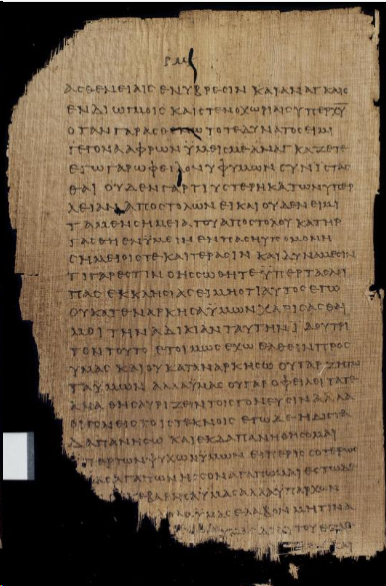 ΑϹΘΕΝΕΙΑΙϹ ΕΝΥΒΡΕϹΙΝ ΚΑΙΑΝΑΓΚΑΙϹ
ΕΝΔΙΩΓΜΟΙϹ ΚΑΙϹΤΕΝΟΧΩΡΙΑΙϹΥΠΕΡΧΥ
ΟΤΑΝΓΑΡΑϹΘΕΝΩΤΟΤΕΔΥΝΑΤΟϹΕΙΜΙ
ΓΕΓΟΝΑΑΦΡΩΝΥΜΕΙϹΜΕΑΝΑΓΚΑΖΕΤΕ
ΕΓΩΓΑΡΩΦΕΙΛΟΝΥΦΥΜΩΝϹΥΝΙϹΤΑϹ
ΘΑΙ ΟΥΔΕΝΓΑΡΤΙΥϹΤΕΡΗΚΑΤΩΝΥΠΕΡ
ΛΕΙΑΝΑΠΟϹΤΟΛΩΝΕΙΚΑΙΟΥΔΕΝΕΙΜΙ
ΤΑΜΕΝϹΗΜΕΙΑΤΟΥΑΠΟϹΤΟΛΟΥΚΑΤΗΡ
ΓΑϹΘΗΕΝΥΜΕΙΝΕΝΠΑϹΗΥΠΟΜΟΝΗ
ϹΗΜΕΙΟΙϹΤΕΚΑΙΤΕΡΑϹΙΝ ΚΑΙΔΥΝΑΜΕϹΙΝ
ΤΙΓΑΡΕϹΤΙΝΟΗϹϹΩΘΗΤΕΥΠΕΡΤΑϹΛΟΙ
ΠΑϹ ΕΚΚΛΗϹΙΑϹΕΙΜΗΟΤΙΑΥΤΟϹΕΓΩ
ΟΥΚΑΤΕΝΑΡΚΗϹΑΥΜΩΝΧΑΡΙϹΑϹΘΑΙ
ΜΟΙ ΤΗΝΑΔΙΚΙΑΝΤΑΥΤΗΝΙΔΟΥΤΡΙ
ΤΟΝΤΟΥΤΟ ΕΤΟΙΜΩϹΕΧΩΕΛΘΕΙΝΠΡΟϹ
ΥΜΑϹ ΚΑΙΟΥΚΑΤΑΝΑΡΚΗϹΩ ΟΥΓΑΡΖΗΤΩ
ΤΑΥΜΩΝ ΑΛΛΑΥΜΑϹ ΟΥΓΑΡΟΦΕΙΛΕΙΤΑΤΕ
ΚΝΑ ΘΗϹΑΥΡΙΖΕΙΝΤΟΙϹΓΟΝΕΥϹΙΝΑΛΛΑ
ΟΙΓΟΝΕΙϹΤΟΙϹΤΕΚΝΟΙϹ ΕΓΩΔΕΗΔΙϹΤΑ
ΔΑΠΑΝΗϹΩ ΚΑΙΕΚΔΑΠΑΝΗΘΗϹΟΜΑΙ
ΥΠΕΡΤΩΝΨΥΧΩΝΥΜΩΝ ΕΙΠΕΡΙϹϹΟΤΕΡΩϹ
ΥΜΑϹΑΓΑΠΩΝΗϹϹΟΝΑΓΑΠΩΜΑΙΕϹΤΩΔΕ
ΕΒΑΡΗϹΑΥΜΑϹΑΛΛΑΥΠΑΡΧΩΝ
ΥΜΑϹΕΛΑΒΟΝΜΗΤΙΝΑ